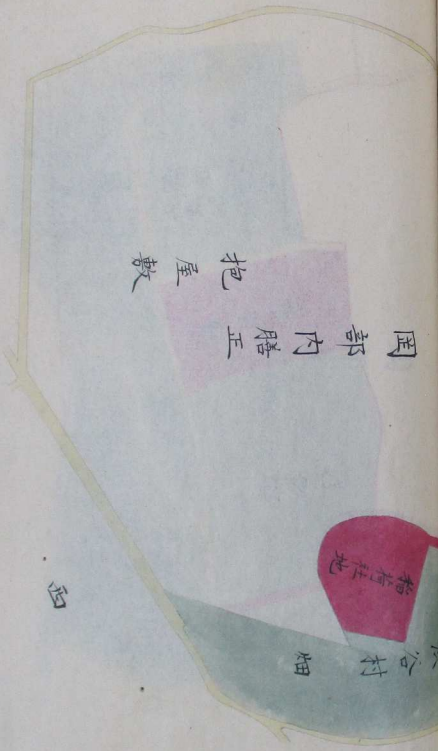 岡部内膳正
抱屋敷
稲荷社地
谷村
畑
西